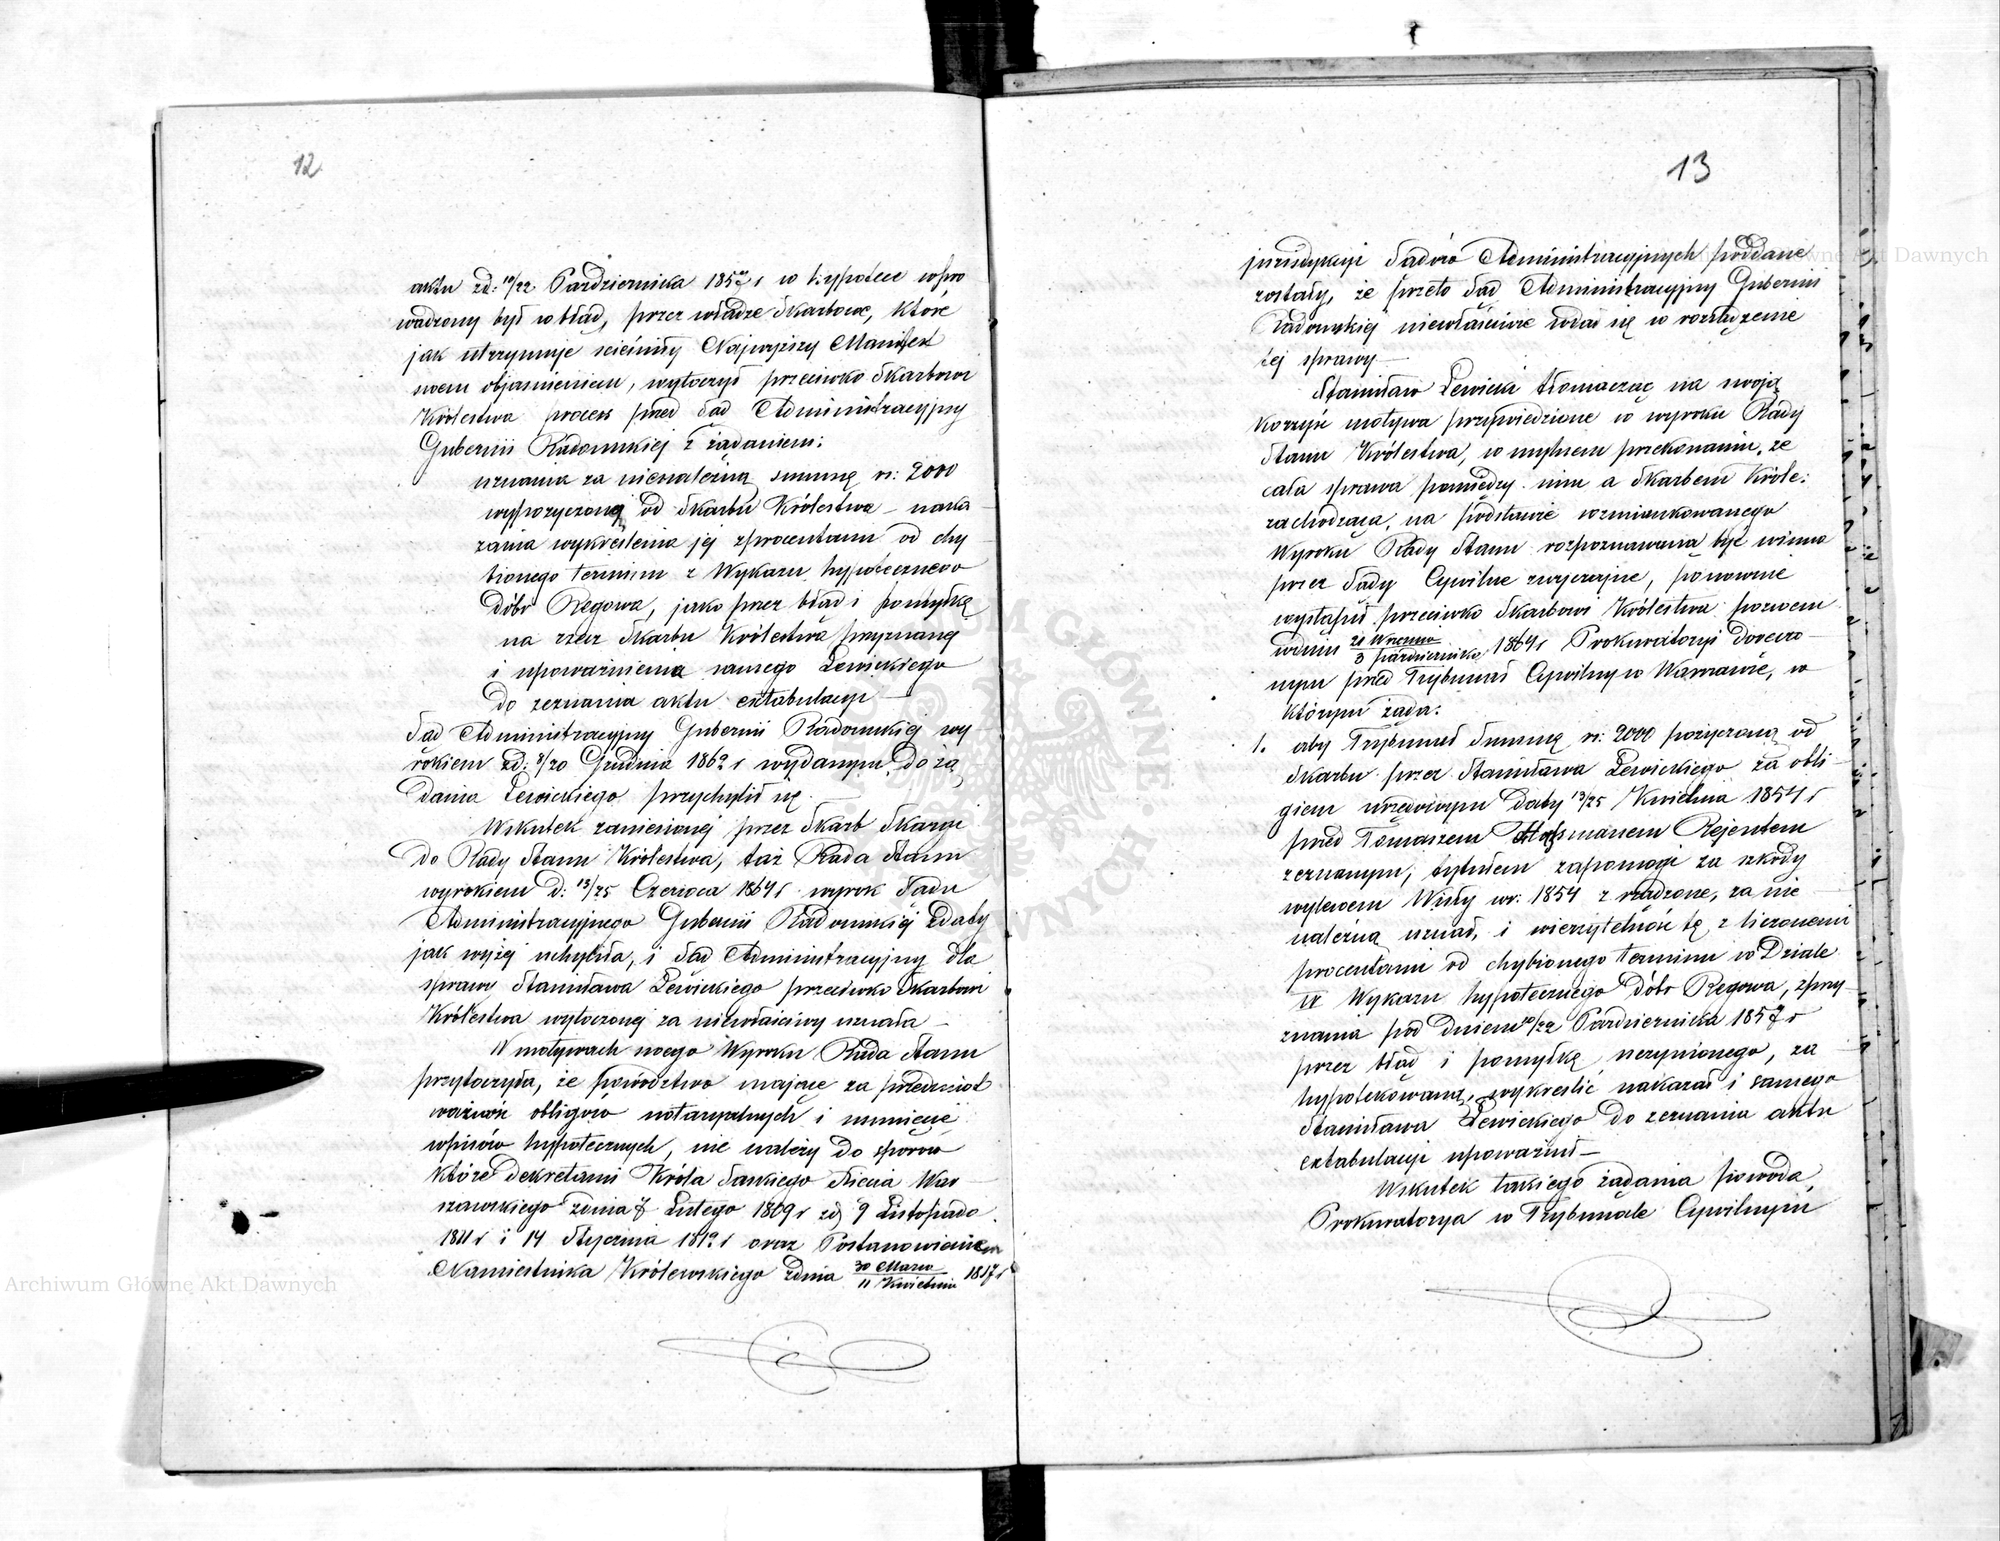 12
aktu zd: 10/22 Października 1857 r w hypotece wpro
wadzony był w błąd, przez władze Skarbowe, które
jak utrzymuje ścieśniły Najwyższy Manifest
swem objaśnieniem, wytoczył przeciwko Skarbowi
Królestwa proces przed Sąd Administracyjny
Gubernii Radomskiej z żądaniem:
uznania za nienależną summę rs: 2000
wypożyczoną od Skarbu Królestwa – naka
zania wykreślenia jej z procentami od chy
bionego terminu z Wykazu hypotecznego
dóbr Regowa, jako przez błąd i pomyłkę
na rzecz Skarbu Królestwa przyznanej
i upoważnienia samego Lewickiego
do zeznania aktu extabulacyi –
Sąd Administracyjny Gubernii Radomskiej wy
rokiem zd: 8/20 Grudnia 1862 r wydanym, do żą
dania Lewickiego przychylił się
Wskutek zaniesionej przez Skarb Skargi
do Rady Stanu Królestwa, taż Rada Stanu
wyrokiem d: 13/25 Czerwca 1864 r wyrok Sądu
Administracyjnego Gubernii Radomskiej z daty
jak wyżej uchyliła, i Sąd Administracyjny dla
sprawy Stanisława Lewickiego przeciwko Skarbowi
Królestwa wytoczonej za niewłaściwy uznała –
W motywach swego Wyroku Rada Stanu
przytoczyła, że powództwo mające za przedmiot
ważność obligów notaryalnych i
wpisów hypotecznych, nie należy do sporów
które dekretami Króla Saskiego Xięcia War
szawskiego z dnia 7 Lutego 1809 r zd 9 Listopada
1811 r i 14 Stycznia 1812 r oraz Postanowieniem
Namiestnika Królewskiego z dnia 30 Marca / 11 Kwietnia 1817 r
13
jurisdykcyi Sądów Administracyjnych poddane
zostały, że przeto Sąd Administracyjny Gubernii
Radomskiej niewłaściwie wdał się w rozsądzenie
tej sprawy –
Stanisław Lewicki tłomacząc na swoją
korzyść motywa przywiedzione w wyroku Rady
Stanu Królestwa, w mylnem przekonaniu, że
cała sprawa pomiędzy nim a Skarbem Króle:
zachodząca, na podstawie wzmiankowanego
Wyroku Rady Stanu rozpoznawaną być winna
przez Sądy Cywilne zwyczajne, ponownie
wystąpił przeciwko Skarbowi Królestwa pozwem
w dniu 21 Września / 3 Października 1864 r Prokuratoryi doręczo
nym przed Trybunał Cywilny w Warszawie, w
którym żąda:
1. aby Trybunał Summę rs: 2000 pożyczoną od
Skarbu przez Stanisława Lewickiego za obli
giem urzędowym daty 13/25 Kwietnia 1854 r
przed Tomaszem Rejentem
zeznanym, tytułem zapomogi za szkody
wylewem Wisły wr: 1854 zrządzone, za nie
należną uznał, i wierzytelność tę z liczonemi
procentami od chybionego terminu w Dziale
IV Wykazu hypotecznego dóbr Regowa, z przy
znania pod dniem 10/22 Października 1857 r
przez błąd i pomyłkę uczynionego, za
hypotekowaną, wykreślić nakazał i samego
Stanisława Lewickiego do zeznania aktu
extabulacyi upoważnił –
Wskutek takiego żądania powoda,
Prokuratorya w Trybunale Cywilnym
Archiwum Główne Akt Dawnych